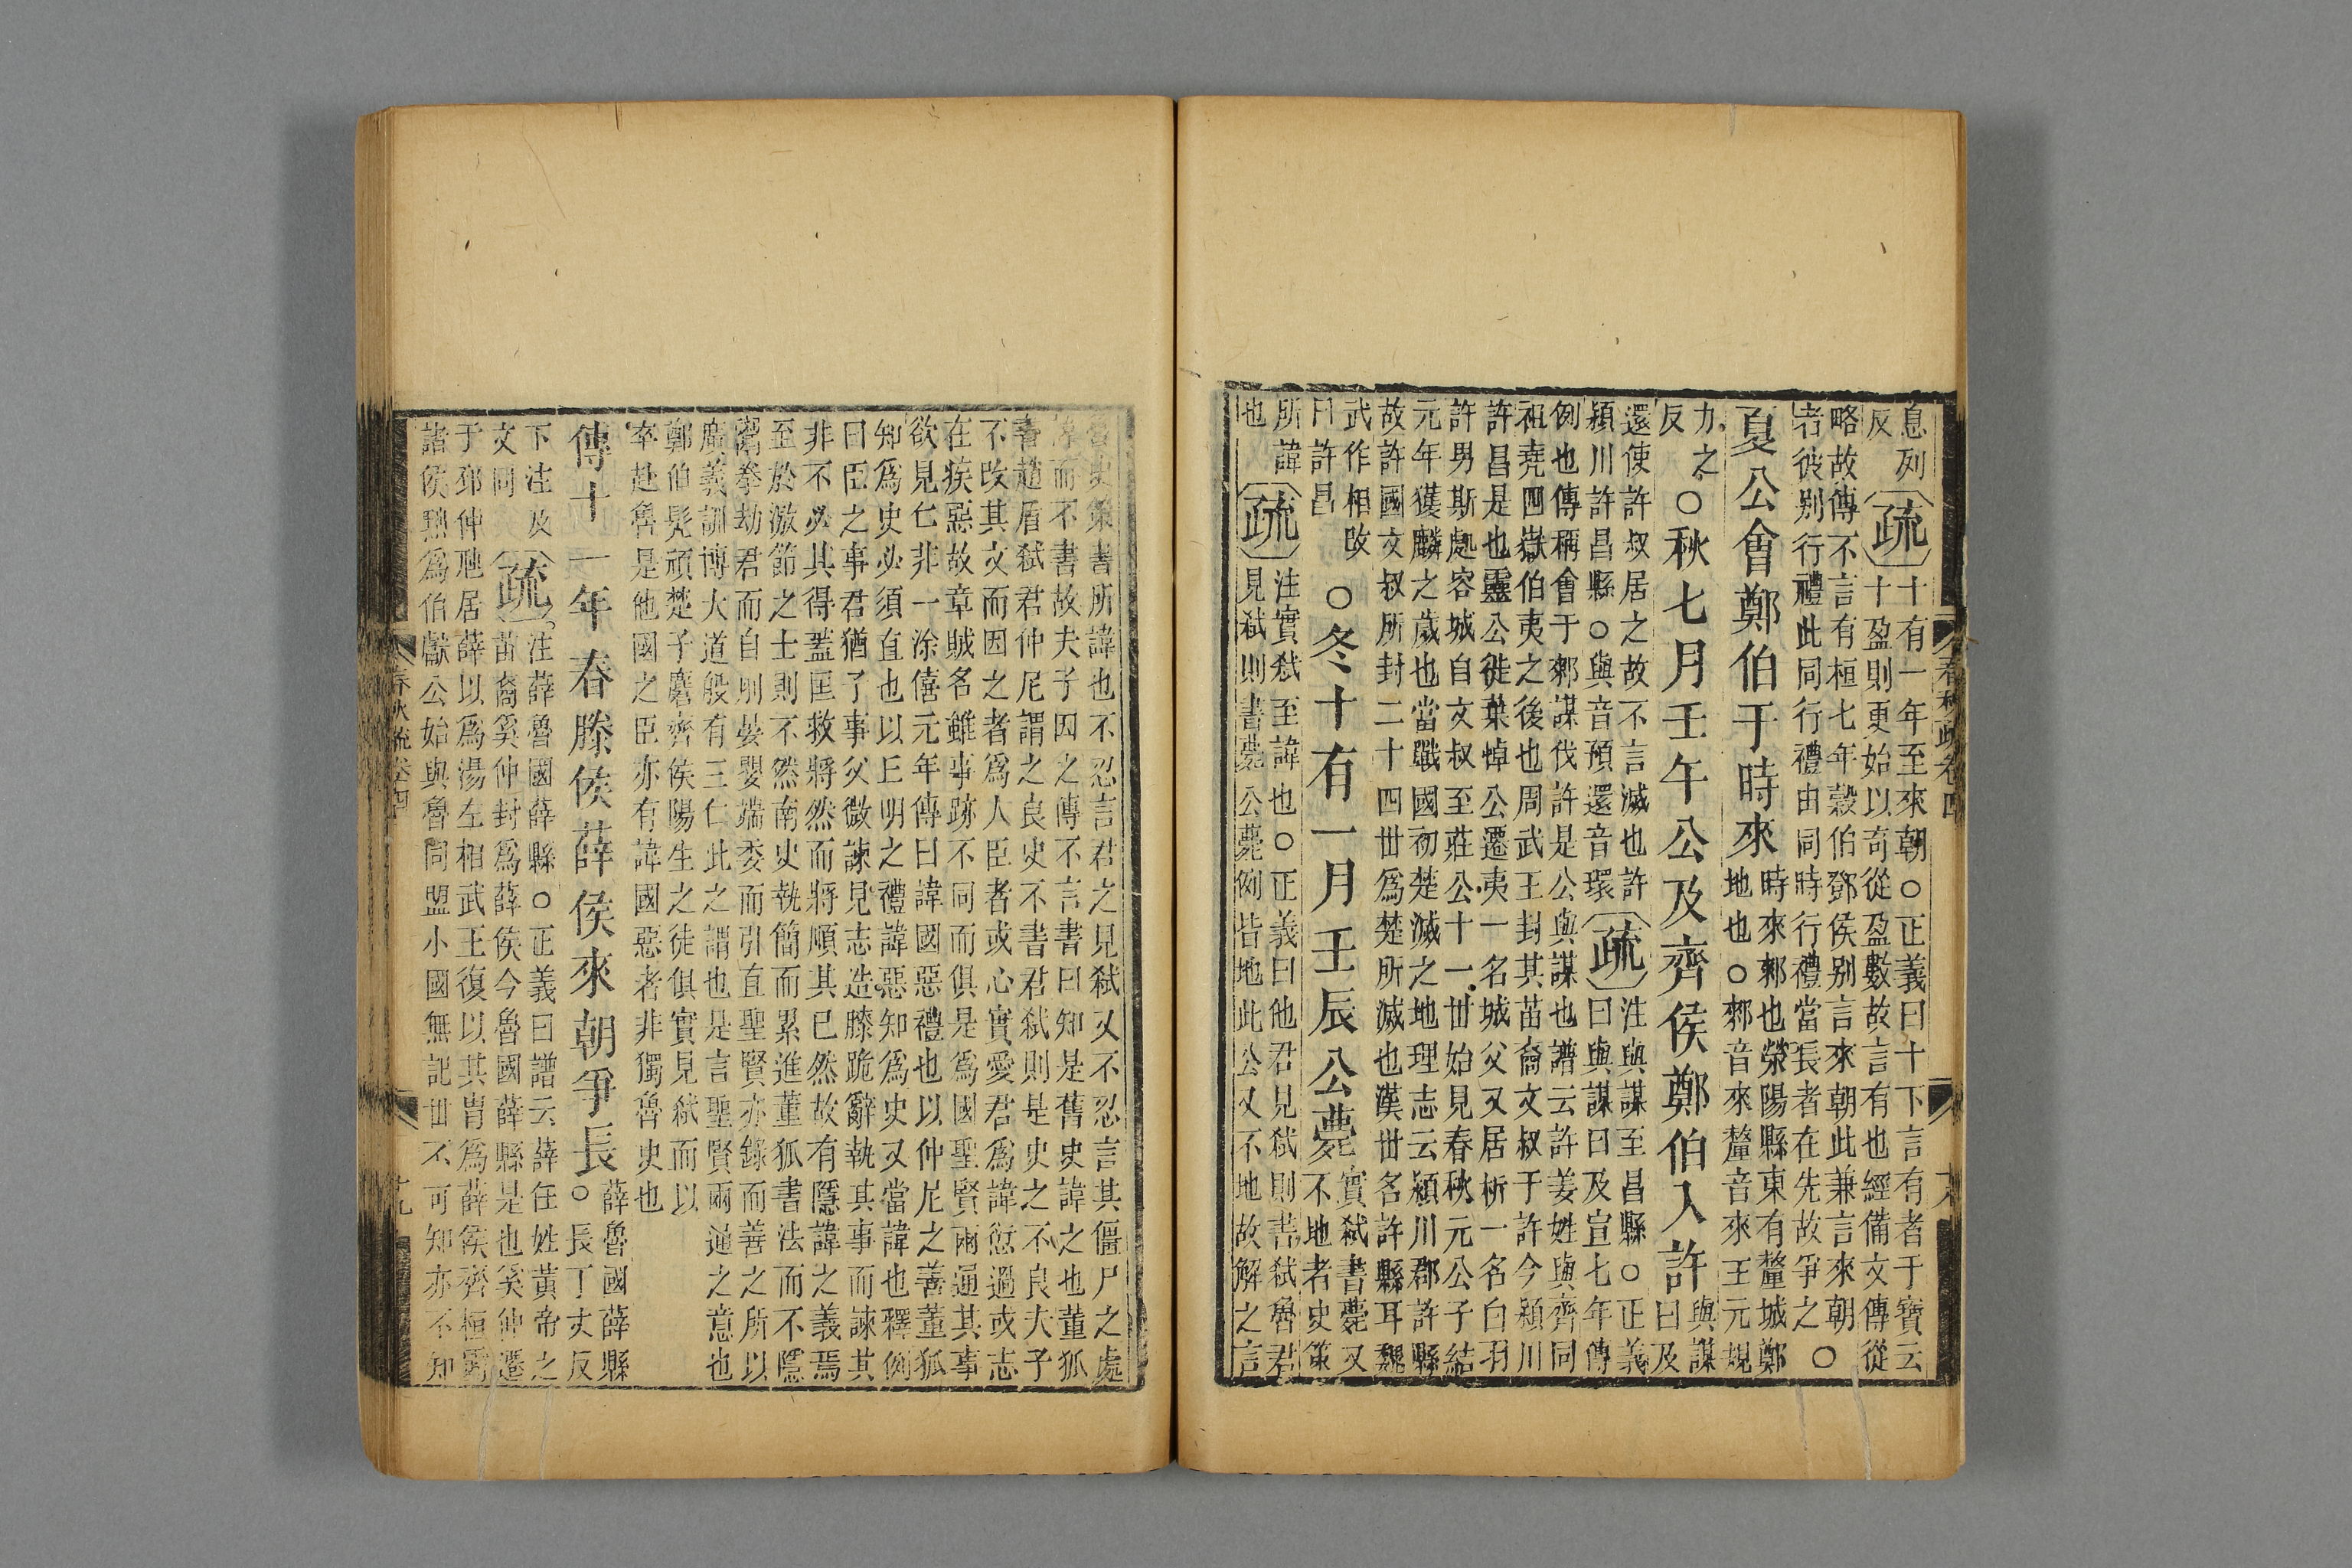 息列
反
疏
十有一年至來朝○正義曰十下言有者于寶云
十盈則更始以奇從盈數故言有也經備文傳從
略故傳不言有桓七年穀伯鄧侯别言來朝此兼言來朝○
者彼别行禮此同行禮由同時行禮當長者在先故爭之
夏公會鄭伯于時來
時來郲也滎陽縣東有釐城鄭
地也○郲音來釐音來王元規
力之
反
○秋七月壬午公及齊侯鄭伯入許
與謀
曰及
還使許叔居之故不言滅也許
潁川許昌縣○與音預還音環
疏
注與謀至昌縣○正義
曰與謀曰及宣七年傳
例也傳稱會于郲謀伐許是公與謀也譜云許姜姓與齊同
祖堯四嶽伯夷之後也周武王封其苗裔文叔于許今潁川
許昌是也靈公徙葉悼公遷夷一名城父又居析一名白羽
許男斯處容城自文叔至莊公十一世始見春秋元公子結
元年獲麟之歲也當戰國初楚滅之地理志云潁川郡許縣
故許國文叔所封二十四世爲楚所滅也漢世名許縣耳魏
武作相改
曰許昌
○冬十有一月壬辰公薨
實弒書薨又
不地者史策
所諱
也
疏
注實弒至諱也○正義曰他君見弒則書弒魯君
見弒則書薨公薨例皆地此公又不地故解之言
春秋疏卷四
魯史策書所諱也不忍言君之見弒又不忍言其僵尸之處
諱而不書故夫子因之傳不言書曰知是舊史諱之也董狐
書趙盾弒君仲尼謂之良史不書君弒則是史之不良夫子
不改其文而因之者爲人臣者或心實愛君爲諱愆過或志
在疾惡故章賊名雖事跡不同而俱是爲國聖賢兩通其事
欲見仁非一涂僖元年傳曰諱國惡禮也以仲尼之善董狐
知爲史必須直也以丘明之禮諱惡知爲史又當諱也釋例
曰臣之事君猶子事父微諫見志造膝跪辭執其事而諫其
非不必其得蓋匡救將然而將順其已然故有隱諱之義焉
至於激節之士則不然南史執簡而累進董狐書法而不隱
鬻拳劫君而自刖晏嬰端委而引直聖賢亦錄而善之所以
廣義訓博大道殷有三仁此之謂也是言聖賢兩通之意也
鄭伯髡頑楚子麇齊侯陽生之徒俱實見弒而以
卒赴魯是他國之臣亦有諱國惡者非獨魯史也
傳十一年春滕侯薛侯來朝爭長
薛魯國薛縣
○長丁丈反
下注及
文同
疏
注薛魯國薛縣○正義曰譜云薛任姓黃帝之
苗裔奚仲封爲薛侯今魯國薛縣是也奚仲遷
于邳仲虺居薛以爲湯左相武王復以其冑爲薛侯齊桓霸
諸侯黜爲伯獻公始與魯同盟小國無記世不可知亦不知
春秋疏卷四
十九